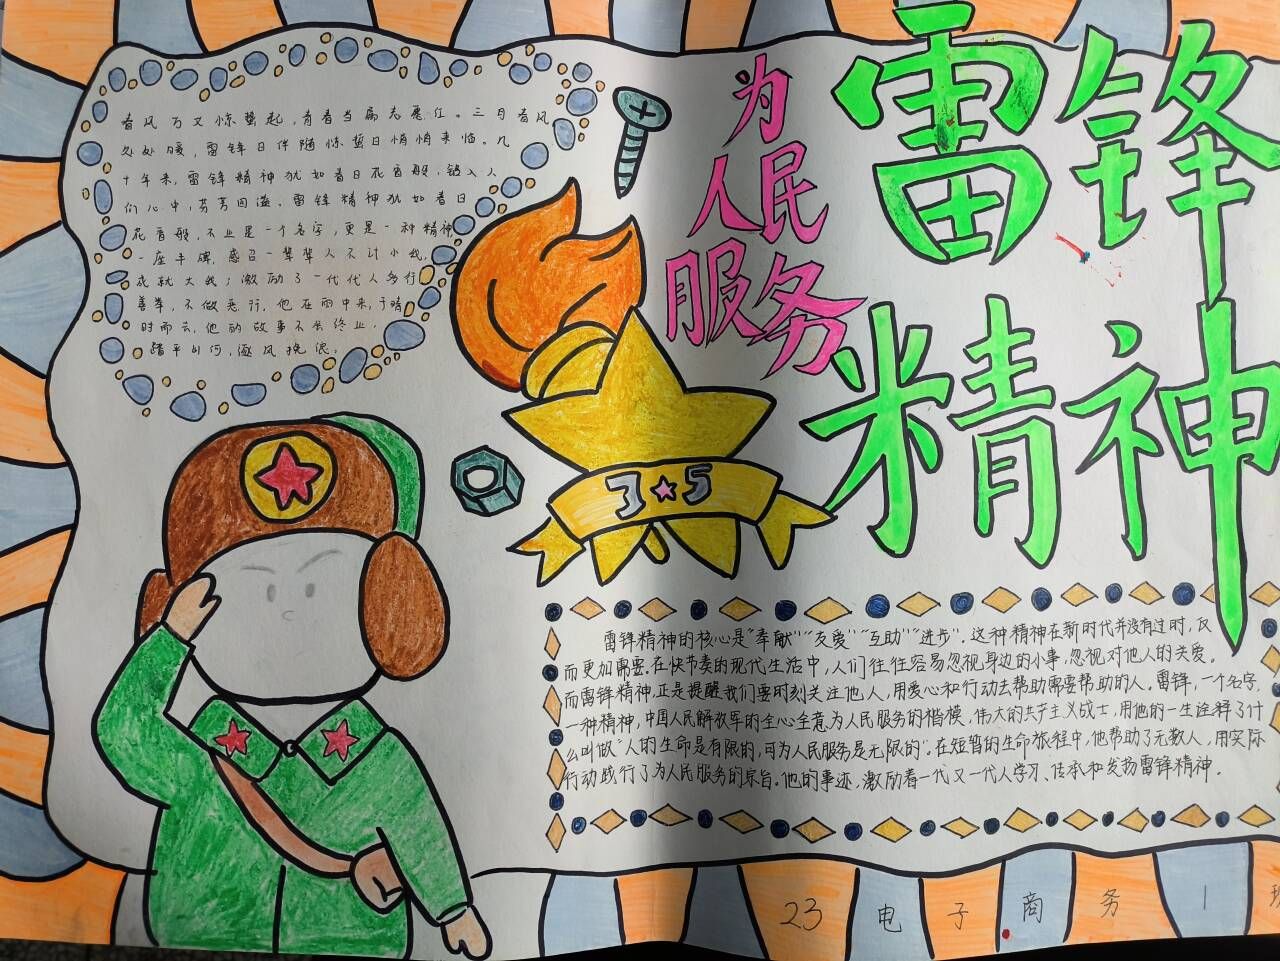 雷锋
精神
为
人民
服务
春风万又惊蛰起，青春当属志愿红。三月春风
处处暖，雷锋日伴随惊蛰日悄悄来临。几
十年来，雷锋精神犹如春日花香般，锁入人
们心中，芬芳四溢。雷锋精神犹如春日
花香般，不止是一个名字，更是一种精神，
一座丰碑，感召一辈辈人不计小我，
成就大我；激励了一代代人多行
善举，不做恶行。他在雨中来，于晴
时而去，他的故事不会终止，
踏平山河，逐风挽浪。
3 5
雷锋精神的核心是“奉献”“友爱”“互助”“进步”，这种精神在新时代并没有过时，反
而更加需要。在快节奏的现代生活中，人们往往容易忽视身边的小事，忽视对他人的关爱。
而雷锋精神，正是提醒我们要时刻关注他人，用爱心和行动去帮助需要帮助的人。雷锋，一个名字，
一种精神，中国人民解放军的全心全意为人民服务的楷模，伟大的共产主义战士，用他的一生诠释了什
么叫做“人的生命是有限的，可为人民服务是无限的”。在短暂的生命旅程中，他帮助了无数人，用实际
行动践行了为人民服务的宗旨。他的事迹，激励着一代又一代人学习、传承和发扬雷锋精神。
23 电子商务 1 班